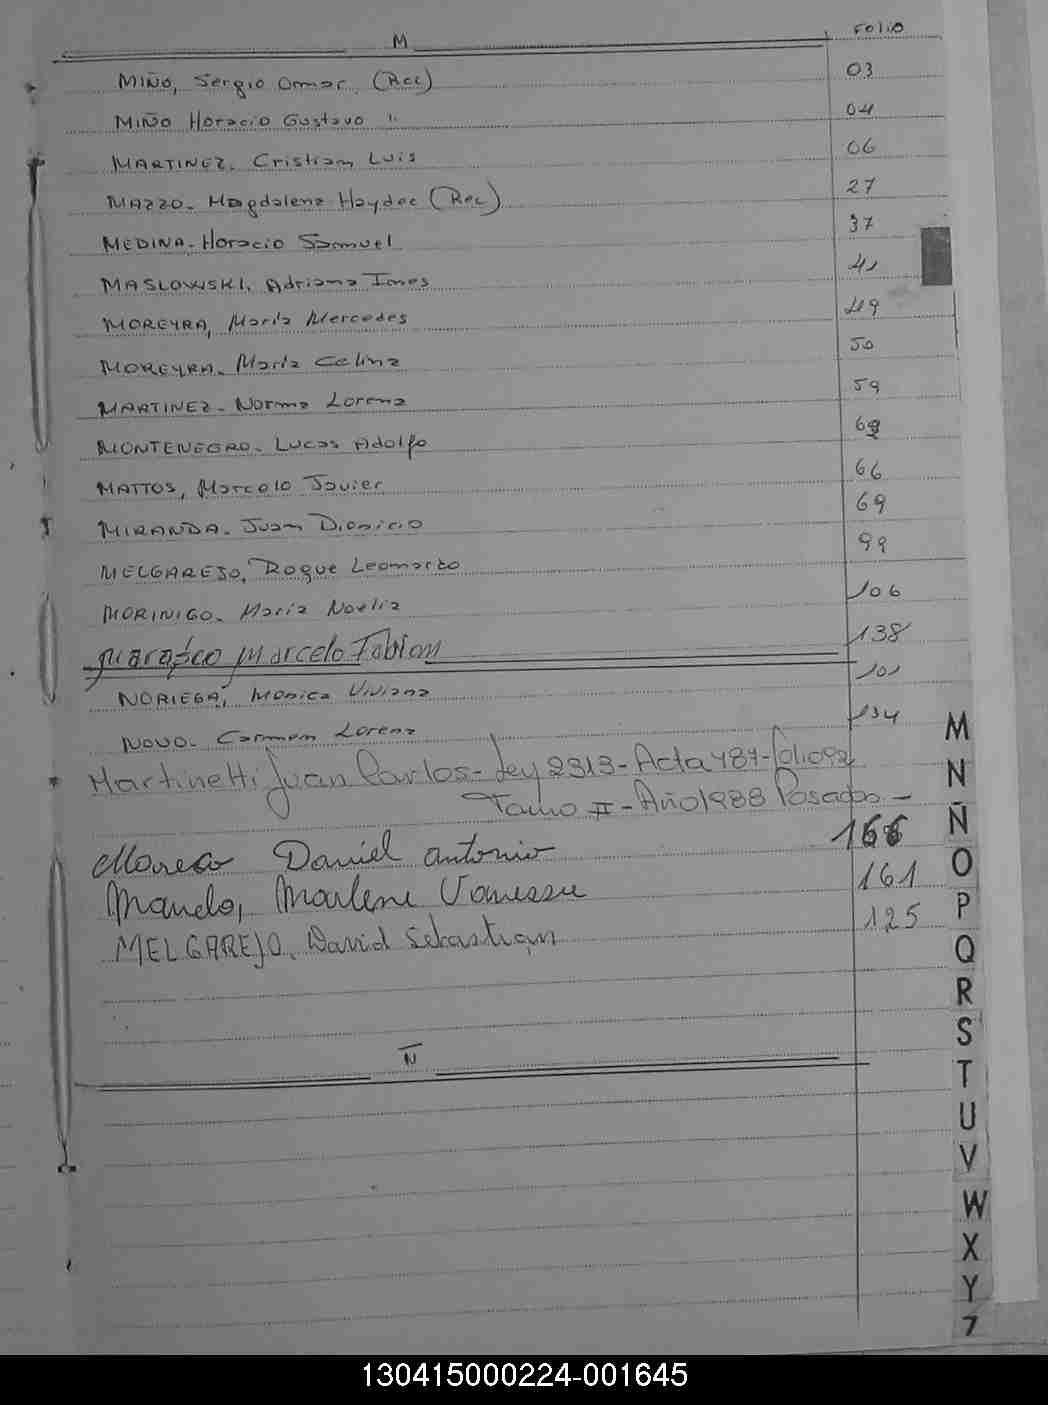 M FOLIO
MIÑO, Sergio Omar (Rec) 03
MIÑO Horacio Gustavo " 04
MARTINEZ. Cristian Luis 06
MAZZO. Magdalena Haydee (Rec) 27
MEDINA. Horacio Samuel 37
MASLOWSKI, Adriana Ines 41
MOREYRA, María Mercedes 49
MOREYRA. María Celina 50
MARTINEZ. Norma Lorena 59
MONTENEGRO. Lucas Adolfo
MATTOS, Marcelo Javier 66
MIRANDA. Juan Dionicio 69
MELGAREJO, Roque Leonardo 99
MORINIGO. María Noelia 106
Marcelo Fabian 138
NORIEGA, Monica Viviana 101
NOVO. Carmen Lorena 134
* Martinetti Juan Carlos - Ley 2313 - Acta 487 - folio 92
Tomo II - Año 1988 Posadas -
Daniel Antonio 166
Marlene Vanessa 161
MELGAREJO. David Sebastian 125
N
M
N
Ñ
O
P
Q
R
S
T
U
V
W
X
Y
Z
130415000224-001645